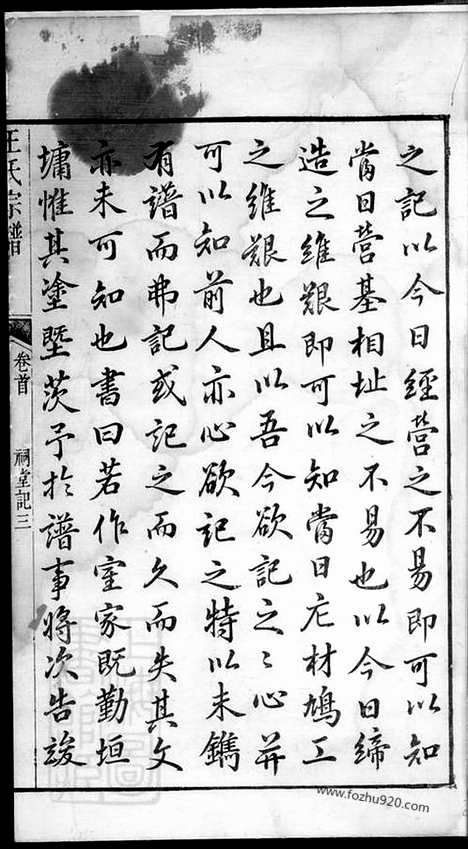 之記以今日經營之不易即可以知
當日營基相址之不易也以今日締
造之維艱即可以知當日庀材鳩工
之維艱也且以吾今欲記之〻心并
可以知前人亦心欲記之特以未鐫
有譜而弗記或記之而久而失其文
亦未可知也書曰若作室家既勤垣
墉惟其塗塈茨予於譜事將次告竣
王氏宗譜
卷首
祠堂記三
www.fozhu920.com